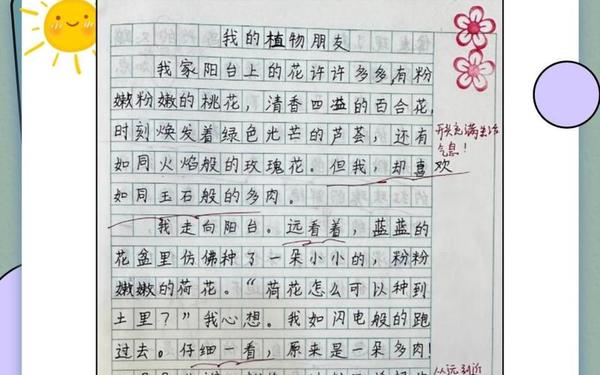 我的植物朋友
我家阳台上的花许许多多，有粉
嫩粉嫩的桃花，清香四溢的百合花，
时刻焕发着绿色光芒的芦荟，还有
如同火焰般的玫瑰花。但我，却喜欢
如同玉石般的多肉。
我走向阳台。远看着，蓝蓝的
花盆里仿佛种了一朵小小的，粉粉
嫩嫩的荷花。“荷花怎么可以种到
土里？”我心想。我如闪电般的跑
过去。仔细一看，原来是一朵多肉！
开头充满生活
气息！
从远到近